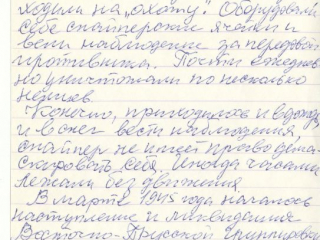 ходили на „охоту". Оборудовали
себе снайперские ячейки и
вели наблюдение за передвой
противника. Почти ежеднев-
но уничтожали по несколько
немцев.
Конечно, приходилось и в дождь
и в снег вести наблюдения,
снайпер не имеет право дема-
скировать себя. Иногда часами
лежали без движения.
В марте 1945 года началось
наступление и ликвидация
Восточно-Прусской группировки